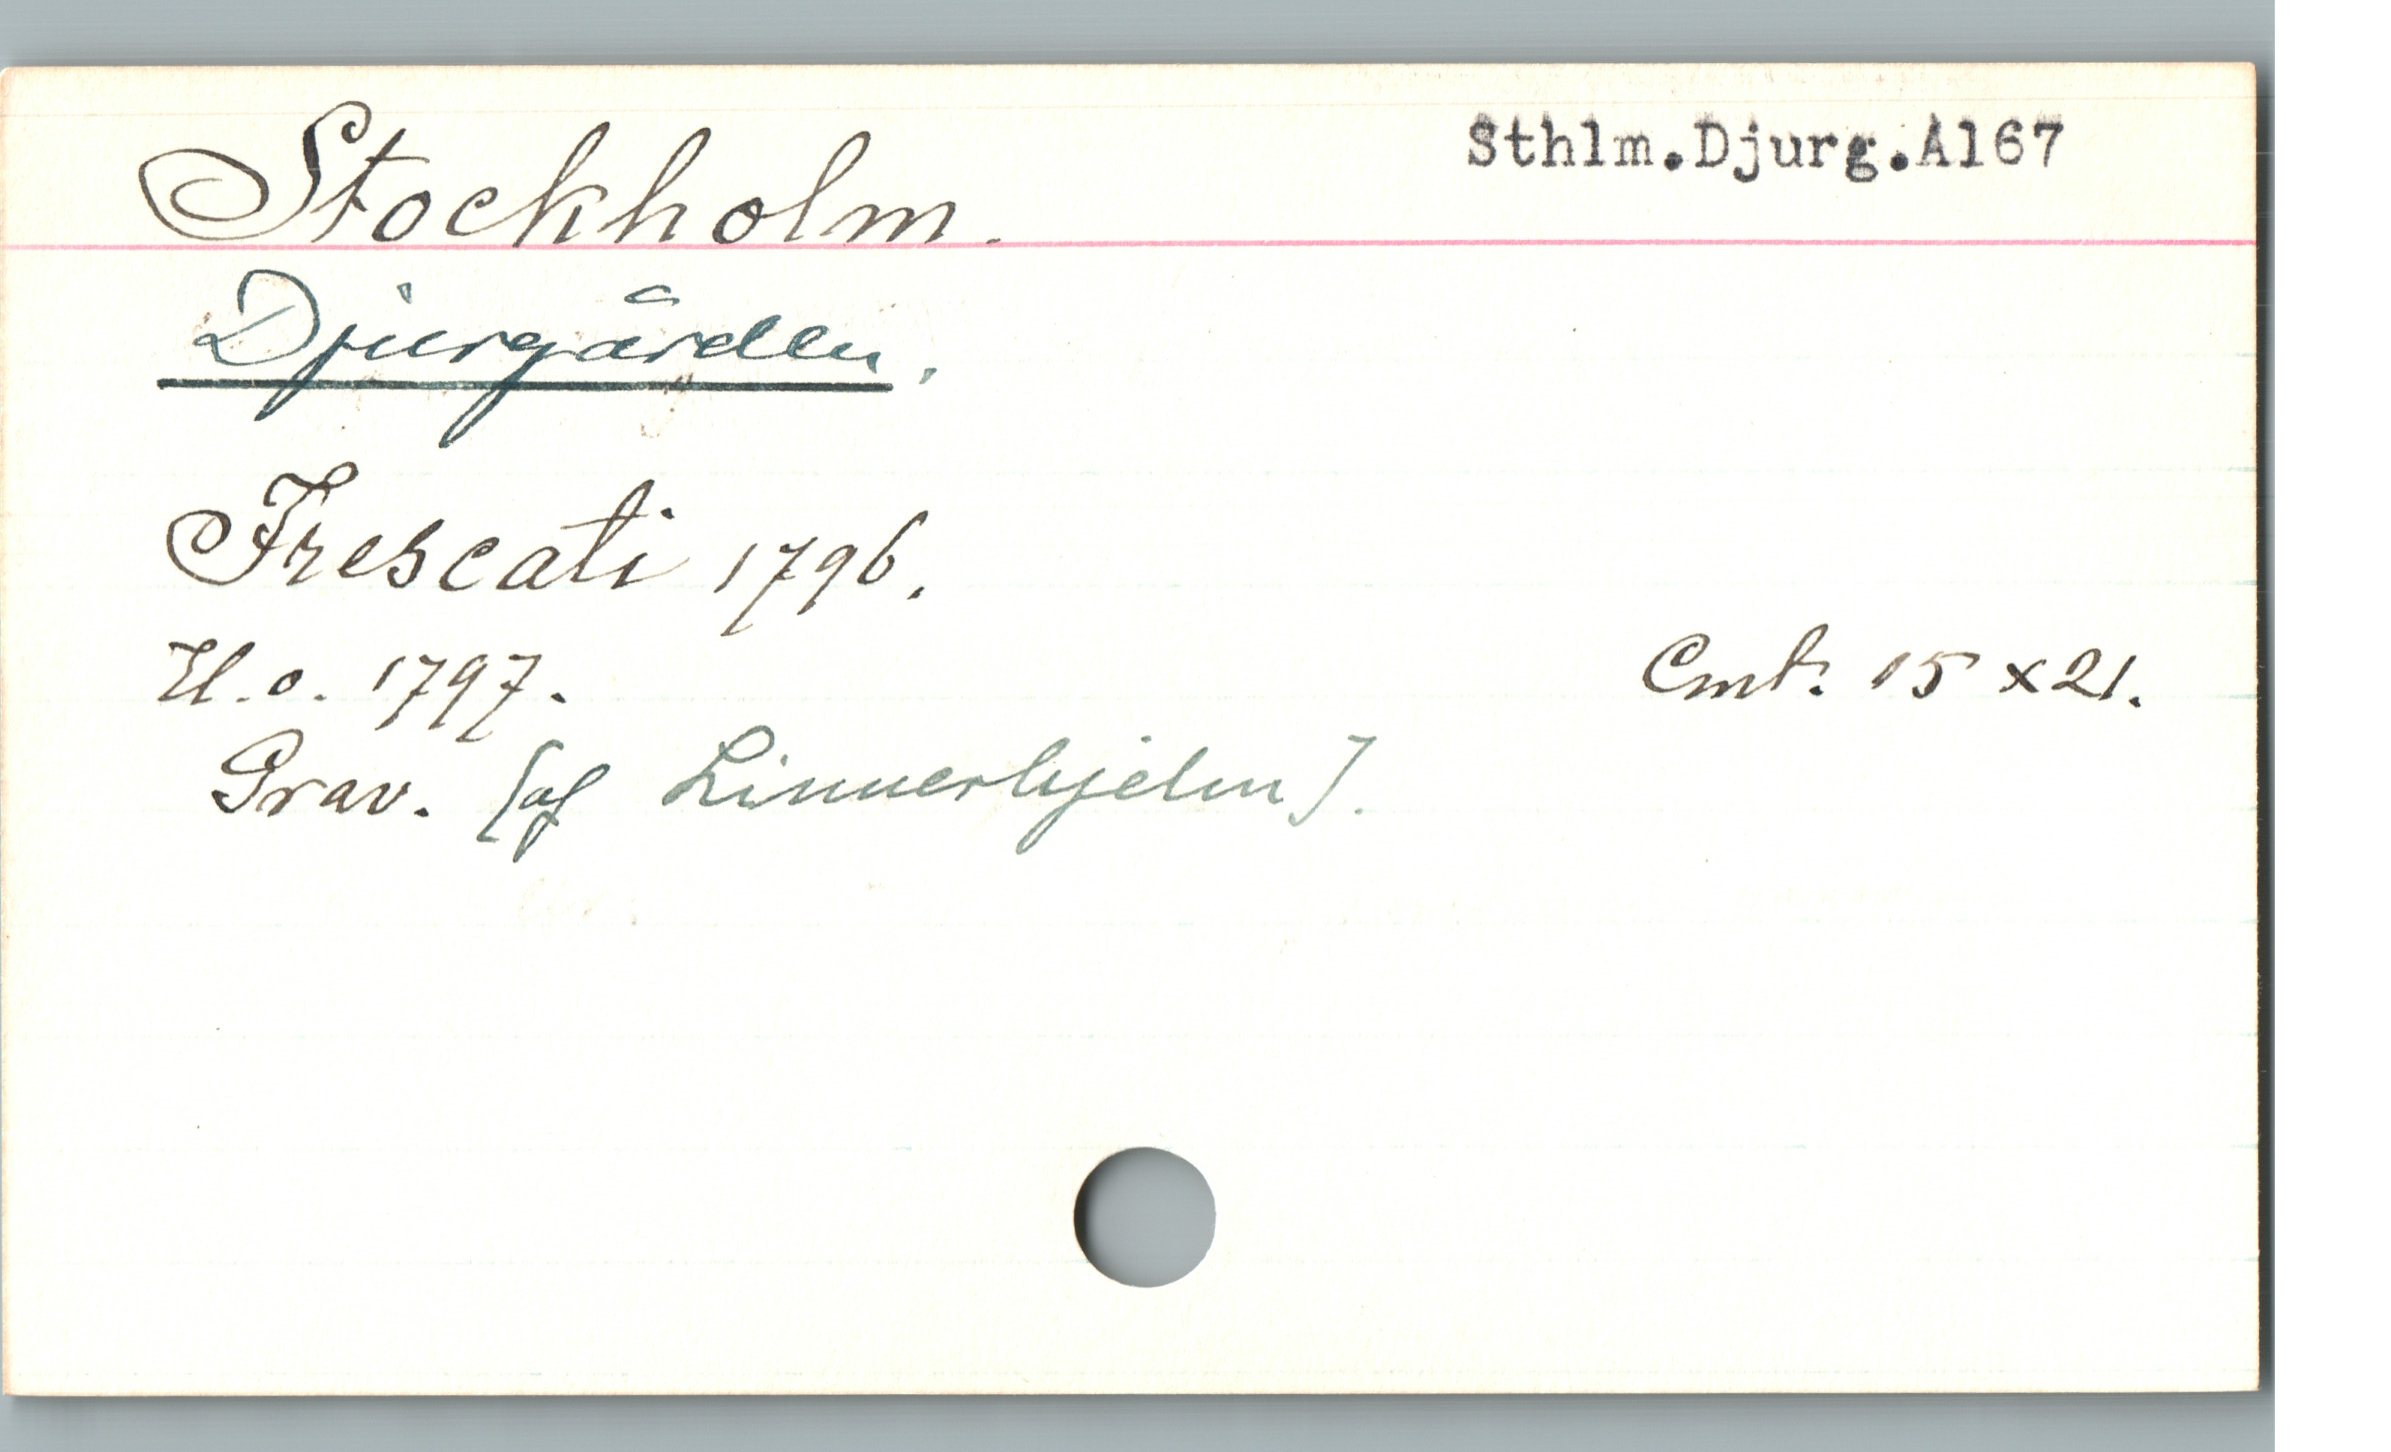 Stockholm.
Sthlm.Djurg.A167
Djurgården.
Frescati 1796.
U.o. 1797.
Cmt. 15 x 21.
Grav. [af Linnerhjelm].